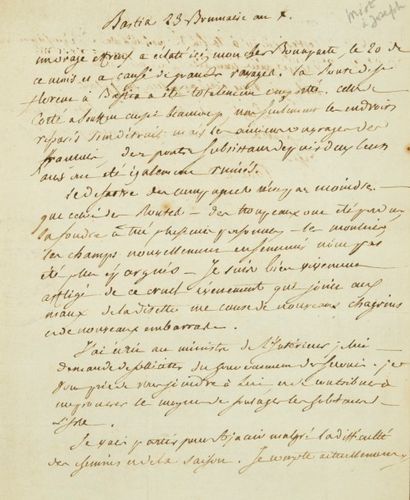 Miot à Joseph
Bastia 23 Brumaire an X.
un orage affreux a eclaté ici mon cher Bonaparte, le 20 de
ce mois et a causé de grands ravages. La route de St
florent à Bastia a été totalement emportée. Celle de
Corte a souffert aussi beaucoup non seulement les endroits
reparés sont détruits mais les anciens ouvrages des
ponts subsistans depuis deux cents
ans ont été également ruinés.
Le desastre des campagnes n'est pas moindre
que celui des Routes — des troupeaux ont été perdus
la foudre a tué plusieurs personnes — les
les champs nouvellement ensemencés n'ont pas
été plus épargnés — Je suis bien vivement
affligé de ce cruel évenement qui joint aux
maux de la disette me cause de nouveaux chagrins
et de nouveaux embarras.
J'ai écrit au ministre de l'Interieur je lui
demande de solliciter du Gouvernement des secours. je
vous prie de vous joindre à lui et de contribuer à
me procurer le moyen de soulager les habitans
Je vais partir pour Ajaccio malgré la difficulté
des chemins et de la saison. Je compte actuellement